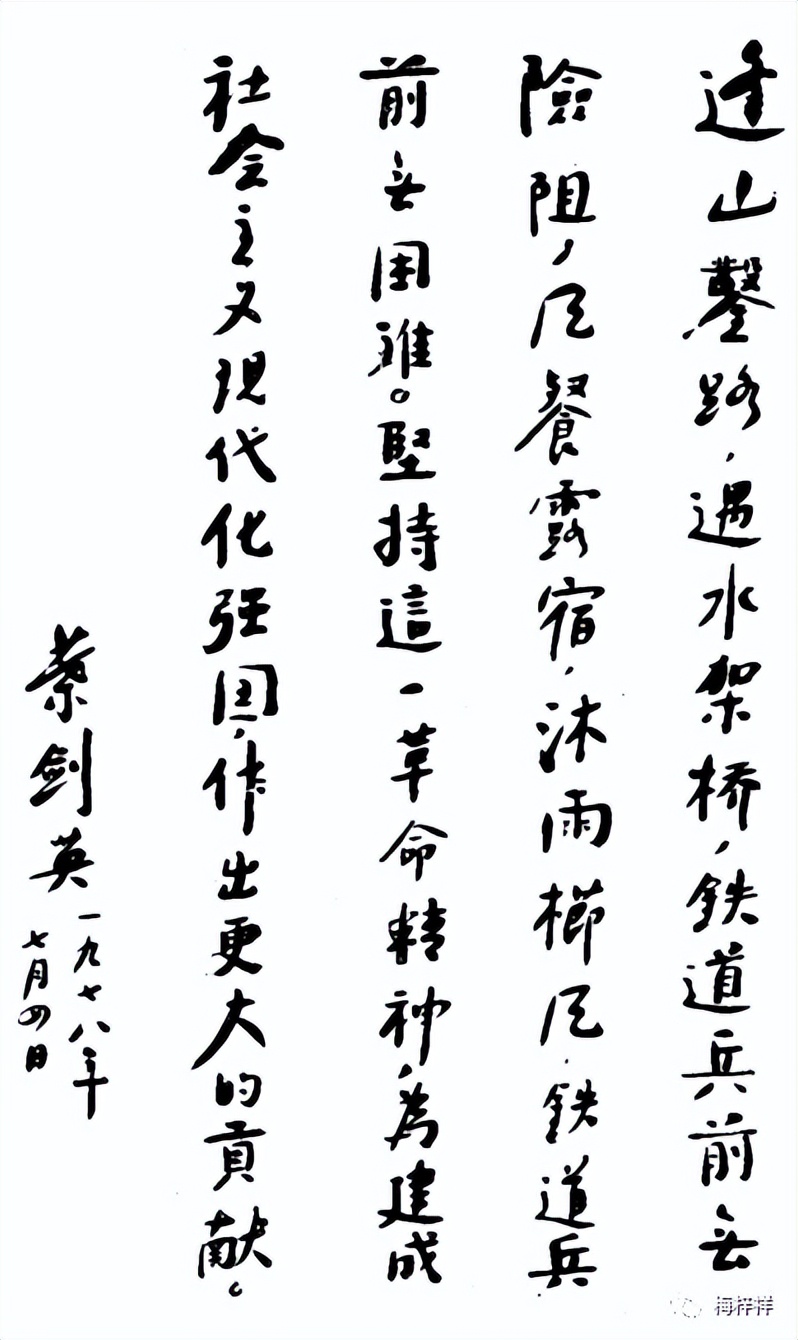 逢山鑿路，遇水架桥，鉄道兵前无
險阻，风餐露宿，沐雨櫛风，鉄道兵
前无困难。堅持這一革命精神，為建成
社会主义現代化强国，作出更大的貢献。
葉剑英
一九七八年
七月四日
梅梓祥